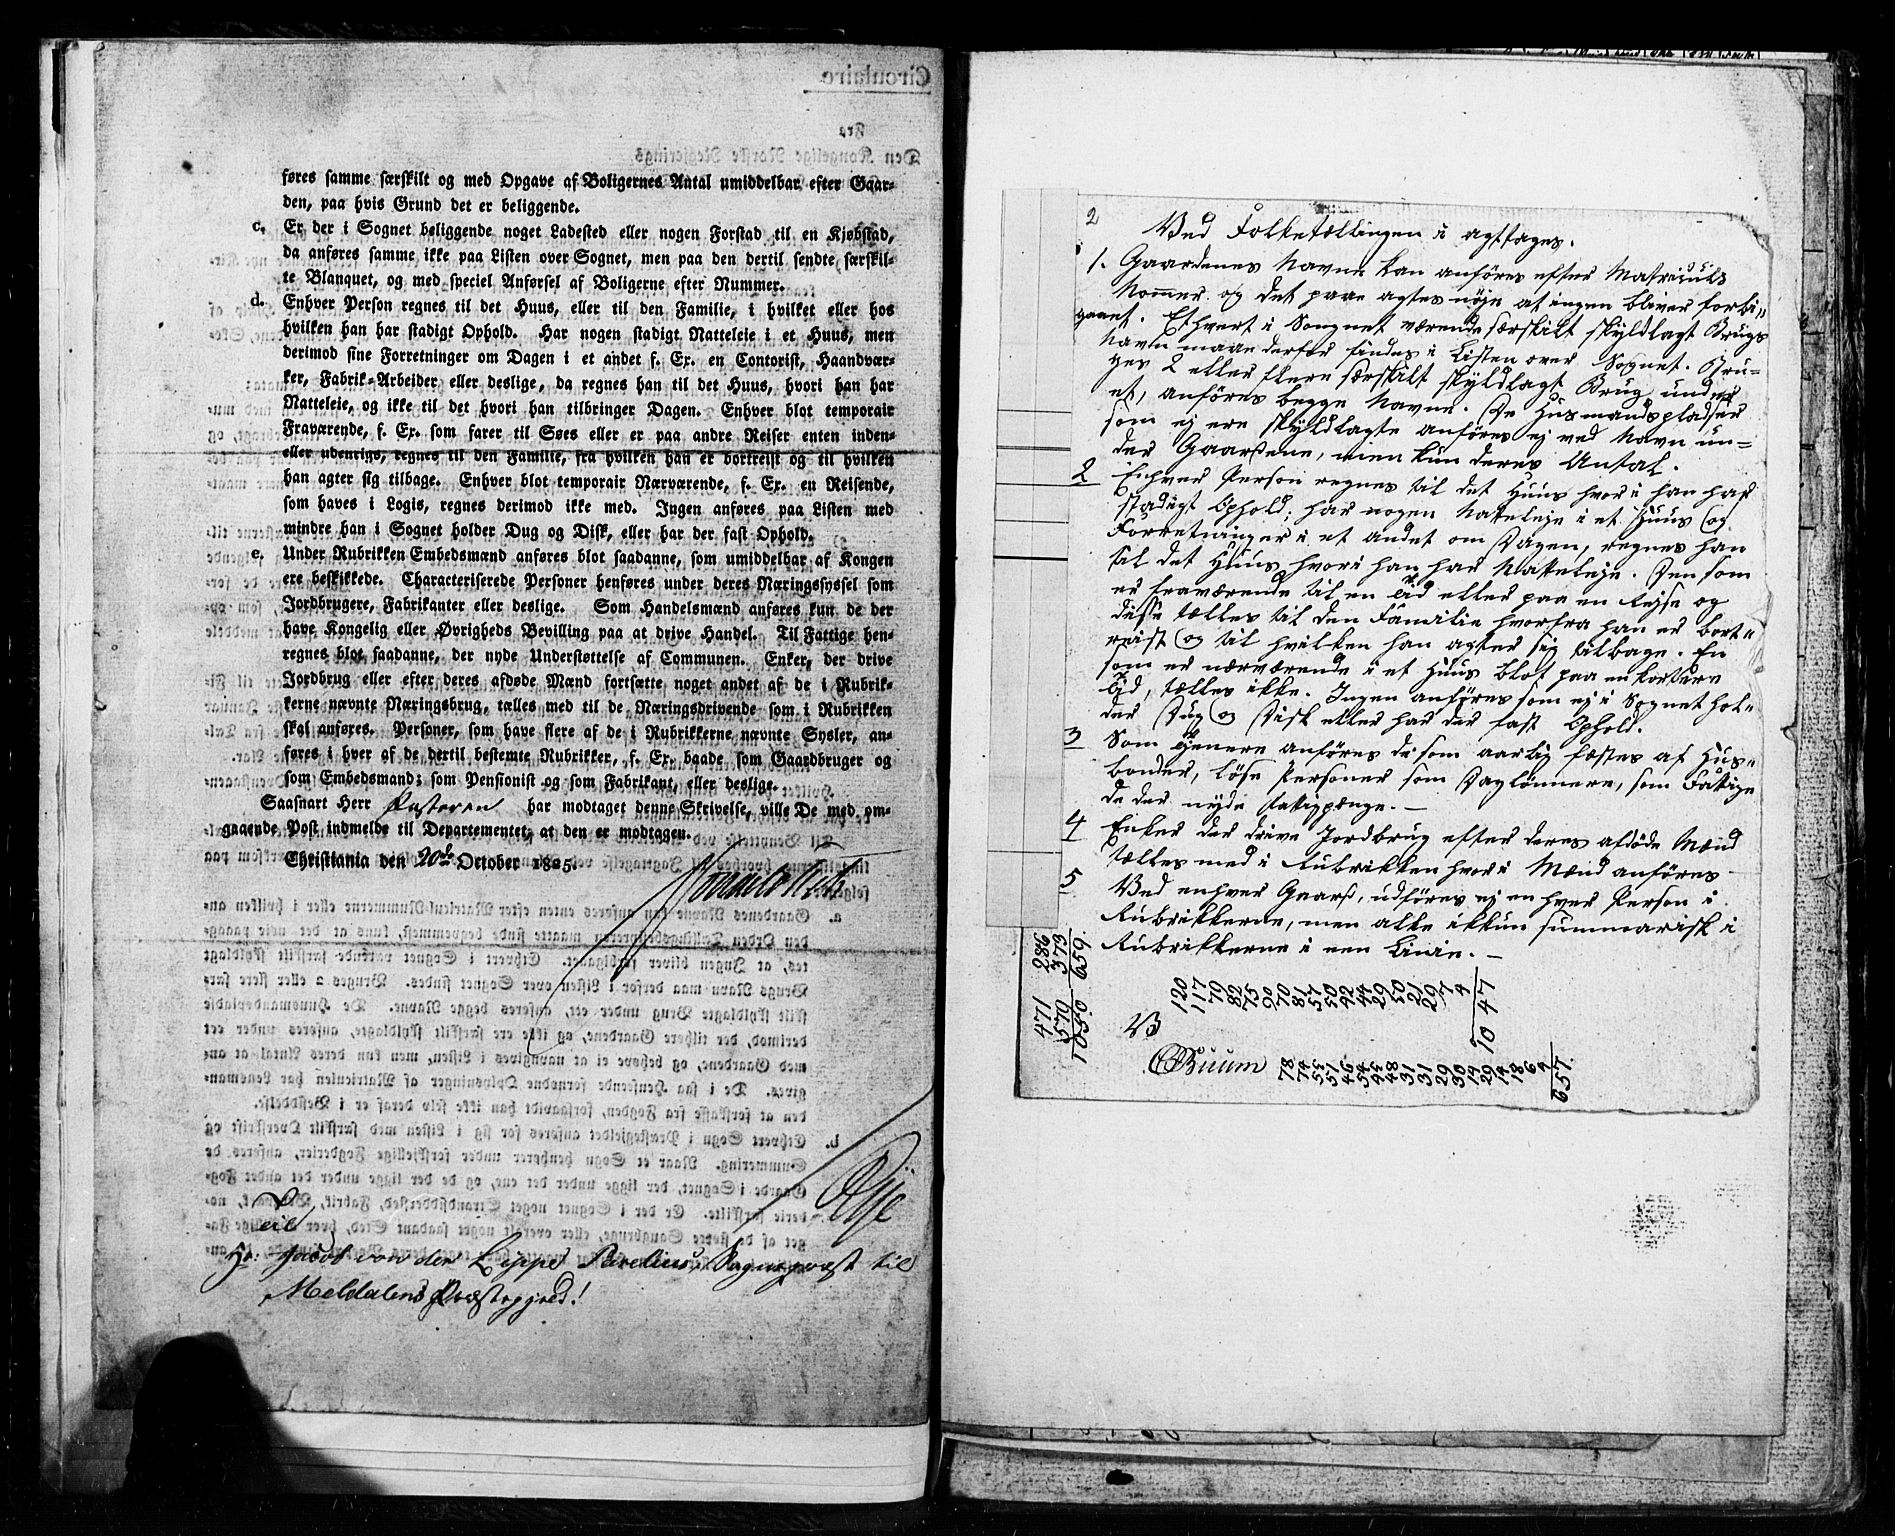 føres samme særskilt og med Opgave af Boligernes Antal umiddelbar efter Gaar-
den, paa hvis Grund det er beliggende.
c. Er der i Sognet beliggende noget Ladested eller nogen Forstad til en Kjøbstad,
da anføres samme ikke paa Listen over Sognet, men paa den dertil sendte særskil-
te Blanquet, og med speciel Anførsel af Boligerne efter Nummer.
d. Enhver Person regnes til det Huus, eller til den Familie, i hvilket eller hos
hvilken han har stadigt Ophold. Har nogen stadigt Natteleie i et Huus, men
derimod sine Forretninger om Dagen i et andet f. Ex. en Contorist, Haandvær-
ker, Fabrik-Arbeider eller deslige, da regnes han til det Huus, hvori han har
Natteleie, og ikke til det hvori han tilbringer Dagen. Enhver blot temporair
Fraværende, f. Ex. som farer til Søes eller er paa andre Reiser enten inden-
eller udenrigs, regnes til den Familie, fra hvilken han er bortreist og til hvilken
han agter sig tilbage. Enhver blot temporair Nærværende, f. Ex. en Reisende,
som haves i Logis, regnes derimod ikke med. Ingen anføres paa Listen med
mindre han i Sognet holder Dug og Disk, eller har der fast Ophold.
e. Under Rubrikken Embedsmænd anføres blot saadanne, som umiddelbar af Kongen
ere beskikkede. Characteriserede Personer henføres under deres Næringssyssel som
Jordbrugere, Fabrikanter eller deslige. Som Handelsmænd anføres kun de der
have Kongelig eller Øvrigheds Bevilling paa at drive Handel. Til Fattige hen-
regnes blot saadanne, der nyde Understøttelse af Communen. Enker, der drive
Jordbrug eller efter deres afdøde Mænd fortsætte noget andet af de i Rubrik-
kerne nævnte Næringsbrug, tælles med til de Næringsdrivende som i Rubrikken
skal anføres. Personer, som have flere af de i Rubrikkerne nævnte Sysler, an-
føres i hver af de dertil bestemte Rubrikker, f. Ex. baade som Gaardbruger og
som Embedsmand; som Pensionist og som Fabrikant, eller deslige.
Saasnart Herr Pastoren har modtaget denne Skrivelse, ville De med om-
gaaende Post indmelde til Departementet, at den er modtagen.
Christiania den 20de October 1825.
Til
Hr: Jacob von der Lippe Parelius, Sogneprest til
Meldalens Præstegjeld!
2
Ved Folketællingen i agttages.
1. Gaardenes Navne kan anföres efter Matriculs
Nommer og det paae agtes nöje at ingen bliver forbi-
gaaet. Ethvert i Songnet værende særskilt skyldlagt Brugs
Navn maae derfor findes i Listen over Sognet. Bru-
ges 2 eller flere særskilt skyldlagt Brug under
et, anföres begge Navne. De Husmandspladser
som ej ere skyldlagte anföres ej ved Navn un-
der Gaardene, men kun deres Antal.
2 Enhver Person regnes til det Huus hvor i han har
stadigt Ophold; har nogen Natteleje i et Huus og
Forretninger i et andet om Dagen, regnes han
til det Huus hvori han har Natteleje. Den som
er fraværende til en tid eller paa en Rejse og
disse tælles til den Familie hvorfra han er bort-
reist og til hvilken han agter sig tilbage. En
som er nærværende i et Huus blot paa en kortere
tid, tælles ikke. Ingen anföres som ej i Sognet hol-
der Dug og Disk eller har der fast Ophold.
3 Som tjenere anföres de som aarlig fæstes af Hus-
bonder, löse Personer som Daglönnere, som Fattige
de der nyde Fattigpænge. —
4 Enker der drive Jordbrug efter deres afdöde Mænd
tælles med i Rubrikken hvor i Mænd anföres
5 Ved enhver Gaard, udföres ej en hver Person i
Rubrikkerne, men alle ikkun summarisk i
Rubrikkerne i een Linie. —
286
373
659.
471
570
1050
120
117
79
82
75
90
70
81
57
50
42
44
29
50
21
29
7
4
1047
73
74
53
51
46
54
43
48
31
31
29
30
15
29
14
18
6
4
657.